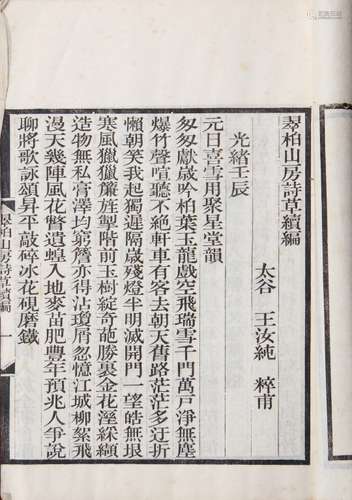 翠柏山房詩草續編
太谷 王汝純 粹甫
光緒壬辰
元日喜雪用聚星堂韻
匆匆獻歲吟柏葉玉龍戲空飛瑞雪千門萬戸淨無塵
爆竹聲喧聽不絕軒車有客去朝天舊路茫茫多迂折
懶朝笑我起獨遲隔歲殘燈半明滅開門一望皓無垠
寒風獵獵簾旌掣階前玉樹綻奇葩勝裹金花淫綵纈
造物無私膏澤均窮簷亦得沾瓊屑忽憶江城柳絮飛
漫天幾陣風花瞥遺蝗入地麥苗肥豐年預兆人爭說
聊將歌詠頌昇平敲碎冰花硯磨鐵
翠柏山房詩草續編 一